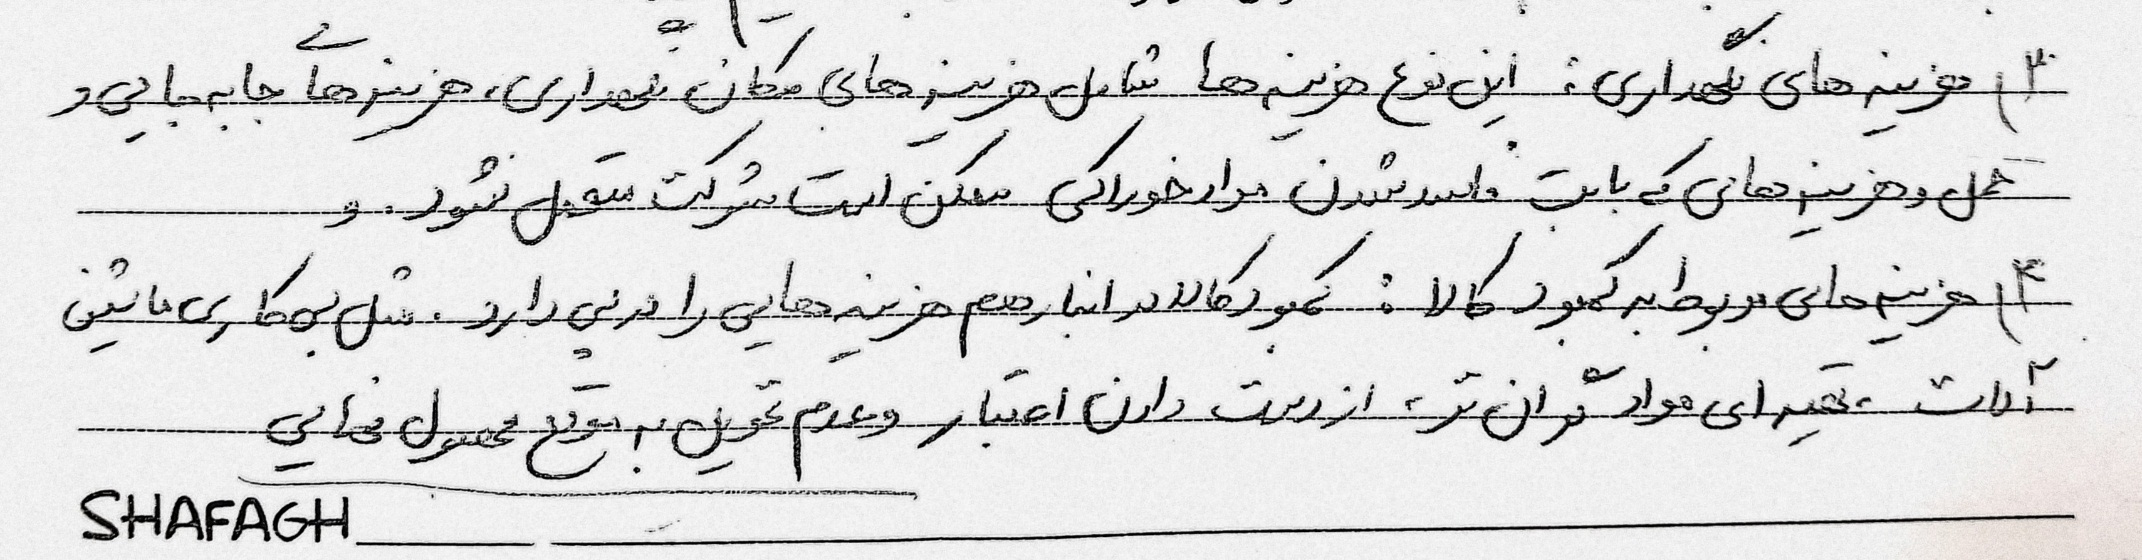 ۳) هزینه های نگهداری : این نوع هزینه ها شامل هزینه های مکان نگهداری، هزینه های جا به جایی و
حمل و هزینه هایی که بابت فاسد شدن مواد خوراکی ممکن است شرکت متقبل شود. و
۴) هزینه های مربوط به کمبود کالا : کمبود کالا در انبار هم هزینه هایی را در پی دارد. مثل بی کاری ماشین
آلات، تهیه ای مواد گران تر، از دست دادن اعتبار و عدم تحویل به موقع محصول نهایی
SHAFAGH